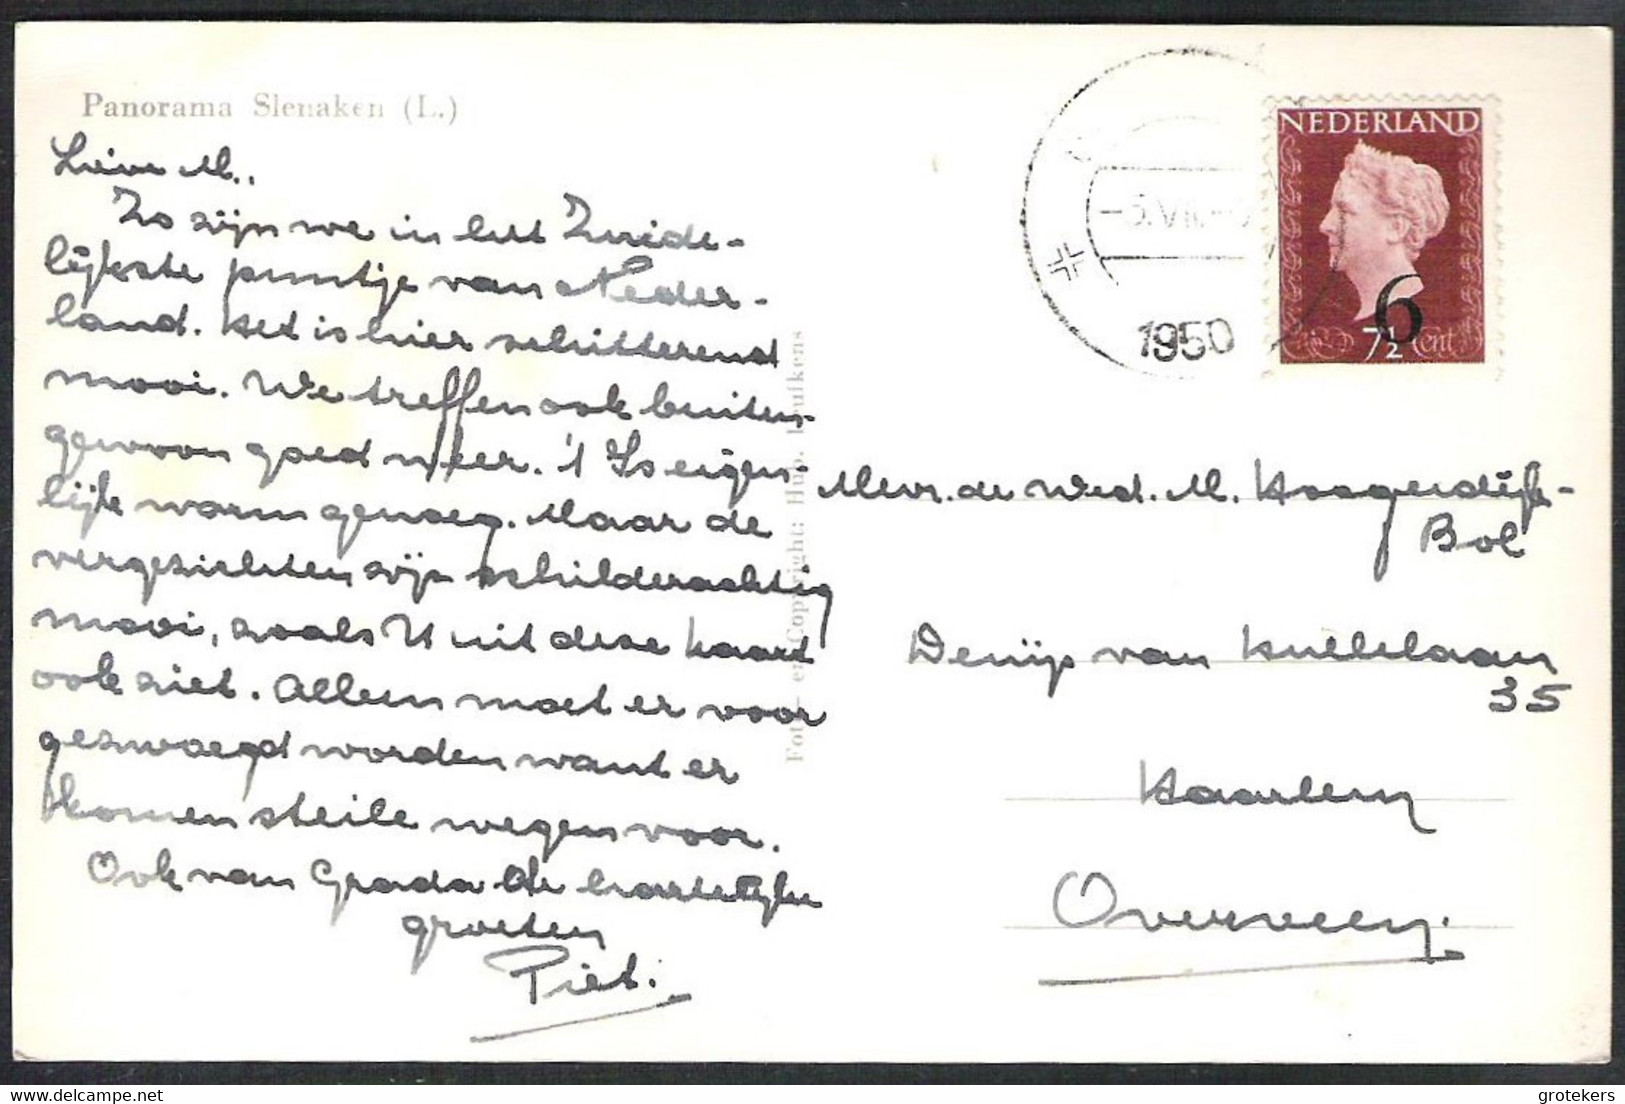 Panorama Slenaken (L.)
Lieve M.,
Zo zijn we in het Zuide-
lijkste puntje van Neder-
land. Het is hier schitterend
mooi. We treffen ook buiten-
gewoon goed weer. 't Is eigen-
lijk warm genoeg. Maar de
vergezichten zijn schilderachtig
mooi, zoals U uit deze kaart
ook ziet. Alleen moet er voor
gezwoegd worden want er
komen steile wegen voor.
Ook van Grada de hartelijke
groeten
Piet.
Foto- en Copyright: Hub. Leufkens
1950
NEDERLAND
6
7½ cent
Mevr. de Wed. M. Hoogerdijk-
Bol
van
35
Haarlem
Overveen.
grotekers